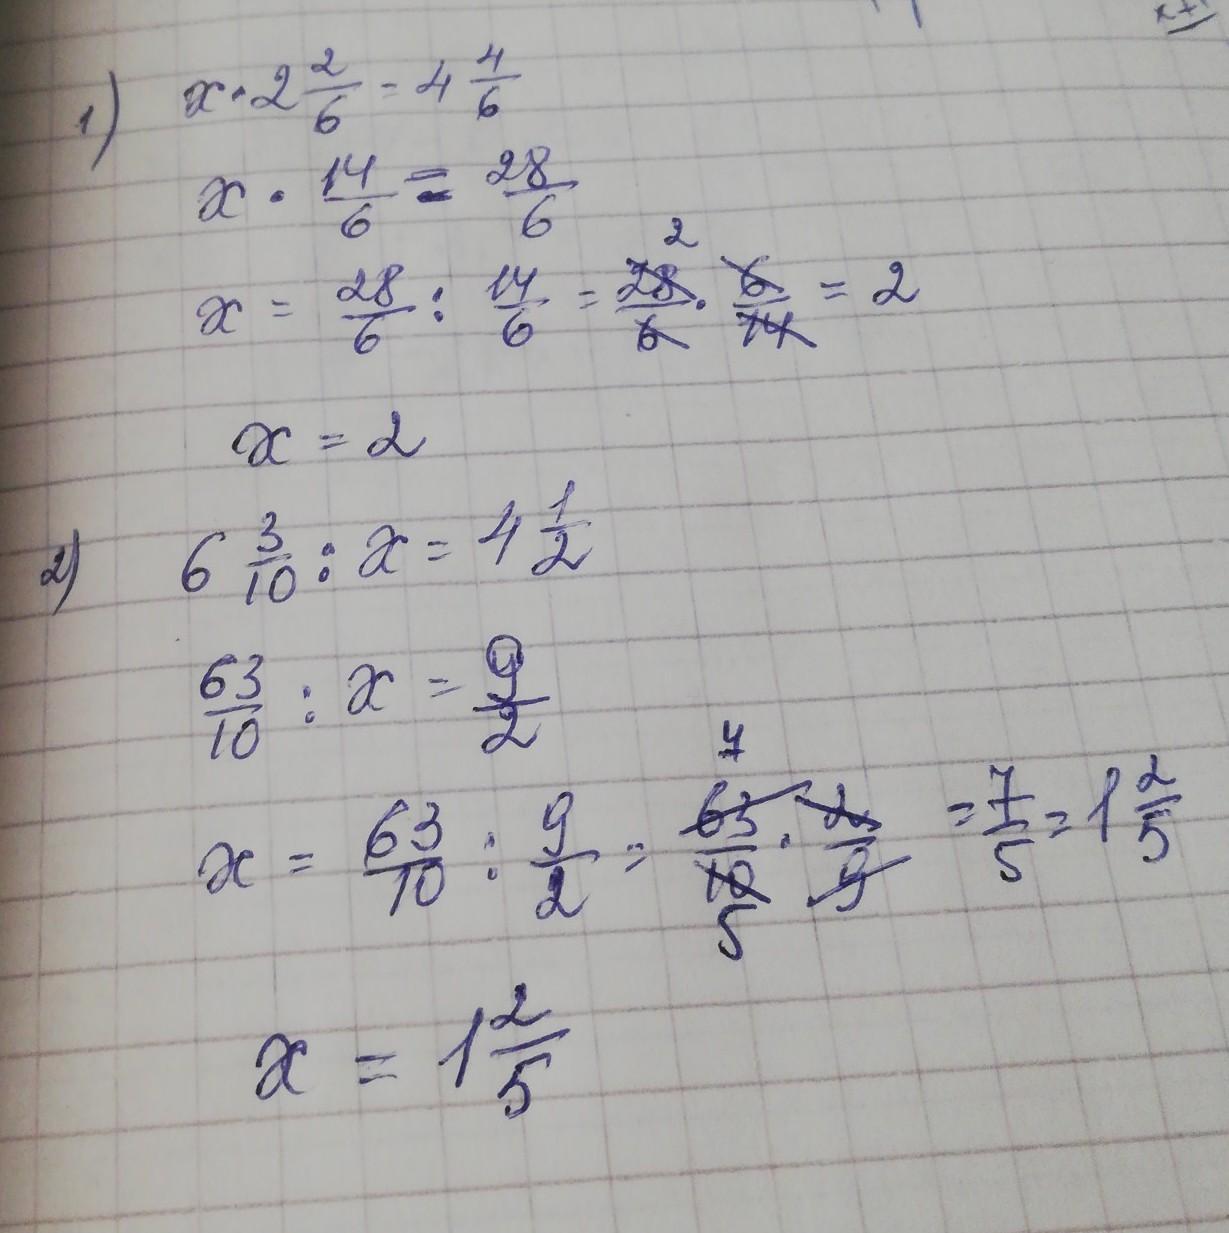 x+1
1) x · 2 2/6 = 4 4/6
x · 14/6 = 28/6
2
x = 28/6 : 14/6 = 28/6 · 6/14 = 2
x = 2
2) 6 3/10 : x = 4 1/2
63/10 : x = 9/2
7
x = 63/10 : 9/2 = 63/10 · 2/9 = 7/5 = 1 2/5
5
x = 1 2/5